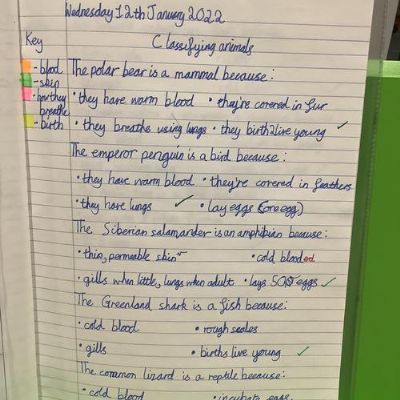 Wednesday 12th January 2022
Key
Classifying animals
- blood
The polar bear is a mammal because:
- skin
- how they breathe
• they have warm blood • they're covered in fur
- birth
• they breathe using lungs • they birth live young ✓
The emperor penguin is a bird because:
• they have warm blood • they're covered in feathers
• they have lungs ✓ • lay eggs (one egg)
The Siberian salamander is an amphibian because:
• thin, permeable skin • cold blooded
• gills when little, lungs when adult • lays 50 eggs ✓
The Greenland shark is a fish because:
• cold blood • rough scales
• gills • births live young ✓
The common lizard is a reptile because:
• cold blood • incubate eggs